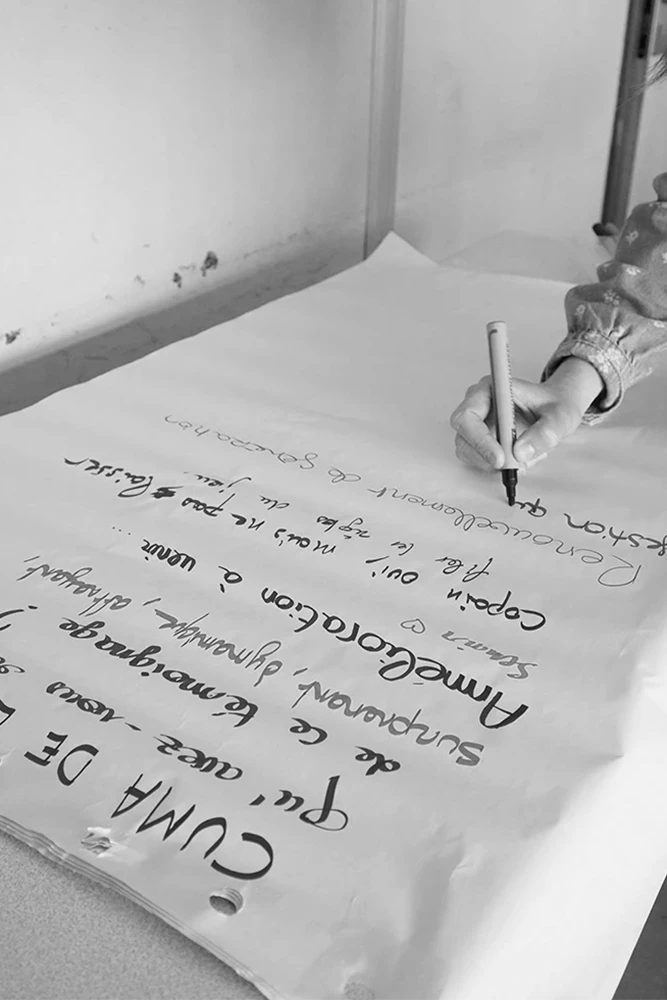 CUMA DE
Qu'avez-vous
de ce témoignage ?
surprenant, dynamique, attrayant,
Amélioration à venir ...
Copain oui! mais ne pas laisser
filer les règles du jeu.
Renouvellement de génération
gestion qu